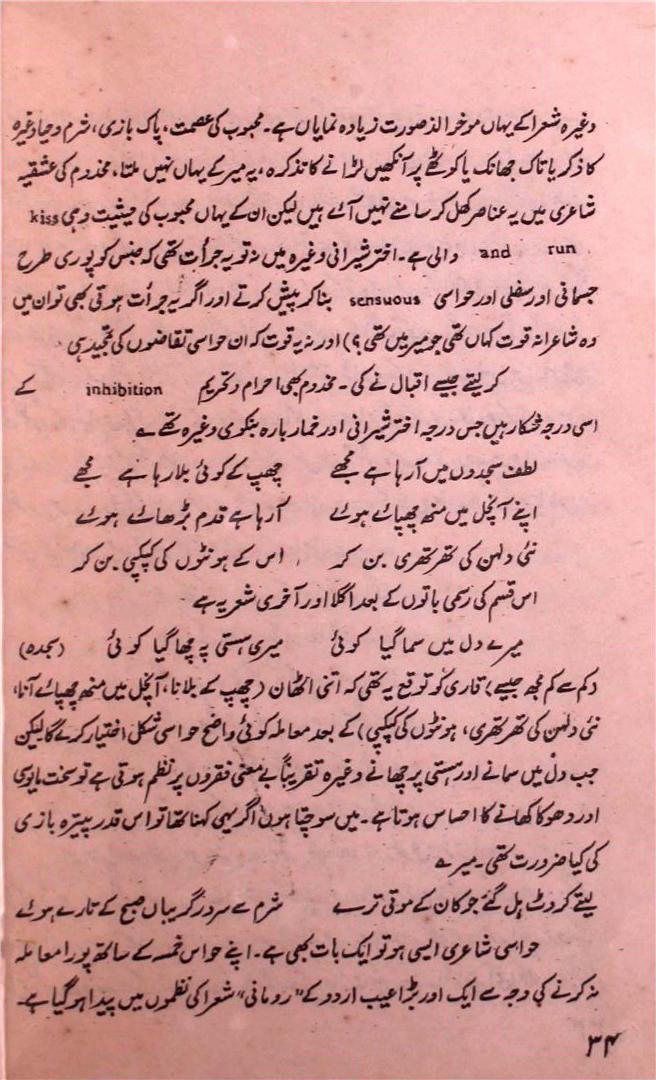 وغیرہ شعرا کے یہاں موخرالذصورت زیادہ نمایاں ہے۔ محبوب کی عصمت، پاک بازی، شرم و حیا وغیرہ
کا ذکر یا تاک جھانک یا کوٹھے پر آنکھیں لڑانے کا تذکرہ، یہ میر کے یہاں نہیں ملتا، مخدوم کی عشقیہ
شاعری میں یہ عناصر کھل کر سامنے نہیں آئے ہیں لیکن ان کے یہاں محبوب کی حیثیت وہی kiss
and run والی ہے۔ اختر شیرانی وغیرہ میں نہ تو یہ جرأت تھی کہ جنس کو پوری طرح
جسمانی اور سفلی اور حواسی sensuous بنا کر پیش کرتے اور اگر یہ جرأت ہوتی بھی تو ان میں
وہ شاعرانہ قوت کہاں تھی جو میر میں تھی؟) اور نہ یہ قوت کہ ان حواسی تقاضوں کی تمجید ہی
کر لیتے جیسے اقبال نے کی۔ مخدوم بھی احرام و تحریم inhibition کے
اسی درجہ شکار ہیں جس درجہ اختر شیرانی اور خمار بارہ بنکوی وغیرہ تھے ؎
لطف سجدوں میں آ رہا ہے مجھے چھپ کے کوئی بلا رہا ہے مجھے
اپنے آنچل میں منھ چھپائے ہوئے آ رہا ہے قدم بڑھائے ہوئے
نئی دلہن کی تھرتھری بن کر اس کے ہونٹوں کی کپکپی بن کر
اس قسم کی رسمی باتوں کے بعد اگلا اور آخری شعر یہ ہے
میرے دل میں سما گیا کوئی میری ہستی پہ چھا گیا کوئی (سجدہ)
(کم سے کم مجھ جیسے) قاری کو توقع یہ تھی کہ اتنی اٹھان (چھپ کے بلانا، آنچل میں منھ چھپائے آنا،
نئی دلہن کی تھرتھری، ہونٹوں کی کپکپی) کے بعد معاملہ کوئی واضح حواسی شکل اختیار کرے گا لیکن
جب دل میں سمانے اور ہستی پر چھانے وغیرہ تقریباً بے معنی فقروں پر نظم ہوتی ہے تو سخت مایوسی
اور دھوکا کھانے کا احساس ہوتا ہے۔ میں سوچتا ہوں اگر یہی کہنا تھا تو اس قدر پیترہ بازی
کی کیا ضرورت تھی۔ میر ؎
لیتے کروٹ ہل گئے جو کان کے موتی ترے شرم سے سر در گریباں صبح کے تارے ہوئے
حواسی شاعری ایسی ہو تو ایک بات بھی ہے۔ اپنے حواس خمسہ کے ساتھ پورا معاملہ
نہ کرنے کی وجہ سے ایک اور بڑا عیب اردو کے "رومانی" شعرا کی نظموں میں پیدا ہو گیا ہے۔
۳۴